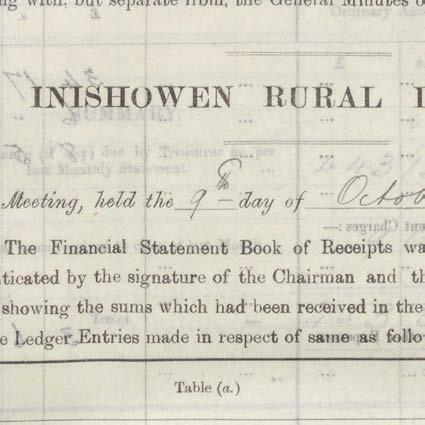 ng with, but separate from, the General Minutes o
INISHOWEN RURAL
Meeting, held the 9th day of Octob
The Financial Statement Book of Receipts wa
nticated by the signature of the Chairman and th
showing the sums which had been received in the
e Ledger Entries made in respect of same as follo
Table (a.)